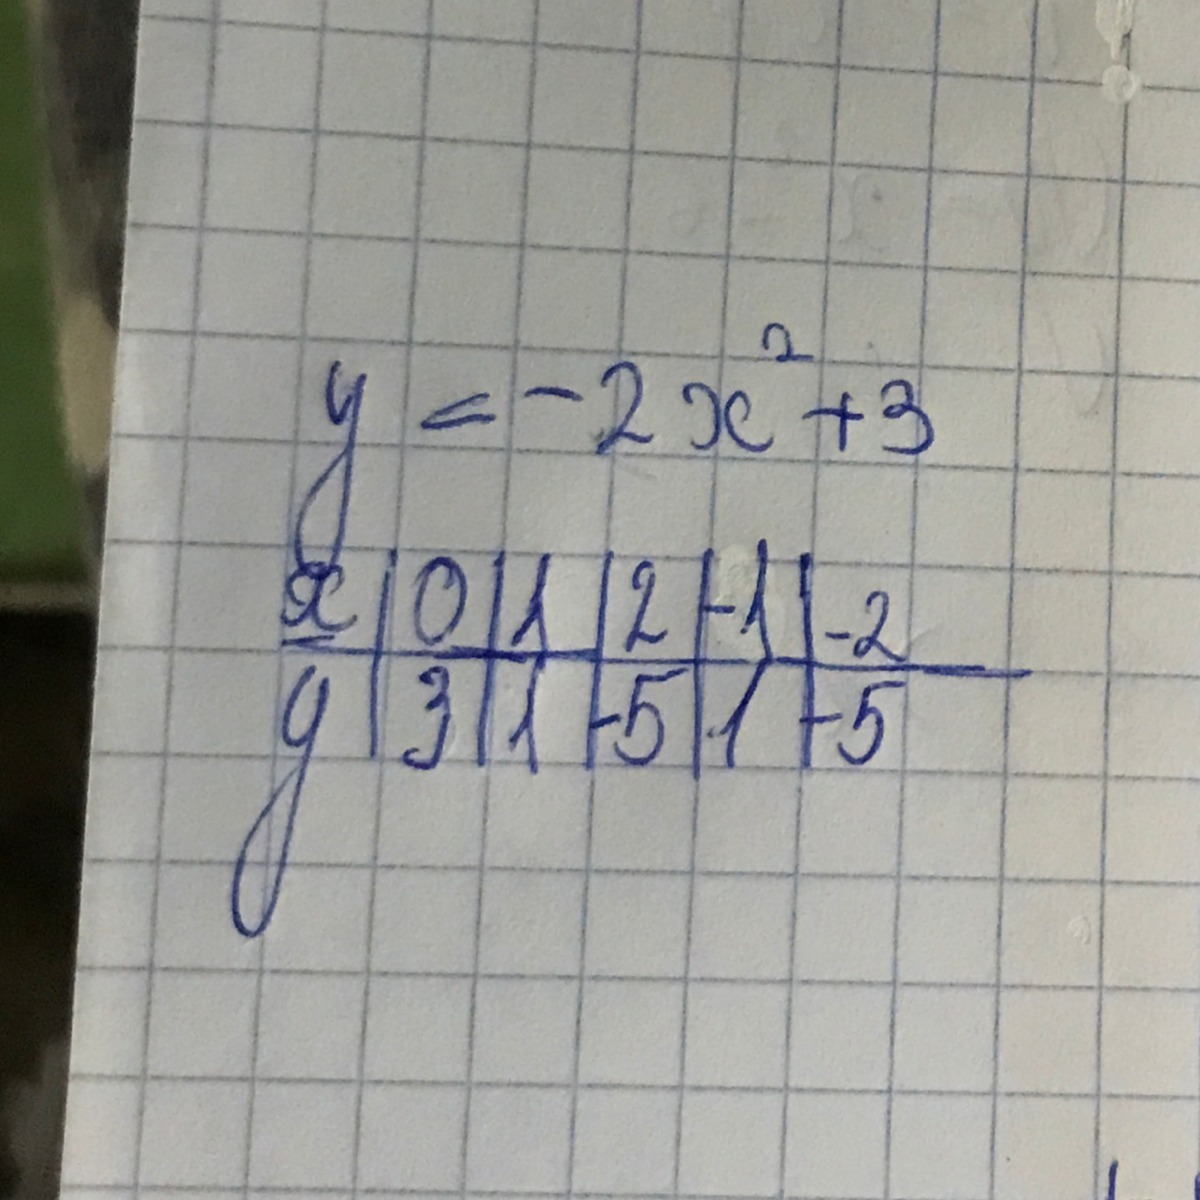 y = -2x² + 3
x | 0 | 1 | 2 | -1 | -2
y | 3 | 1 | -5 | 1 | -5